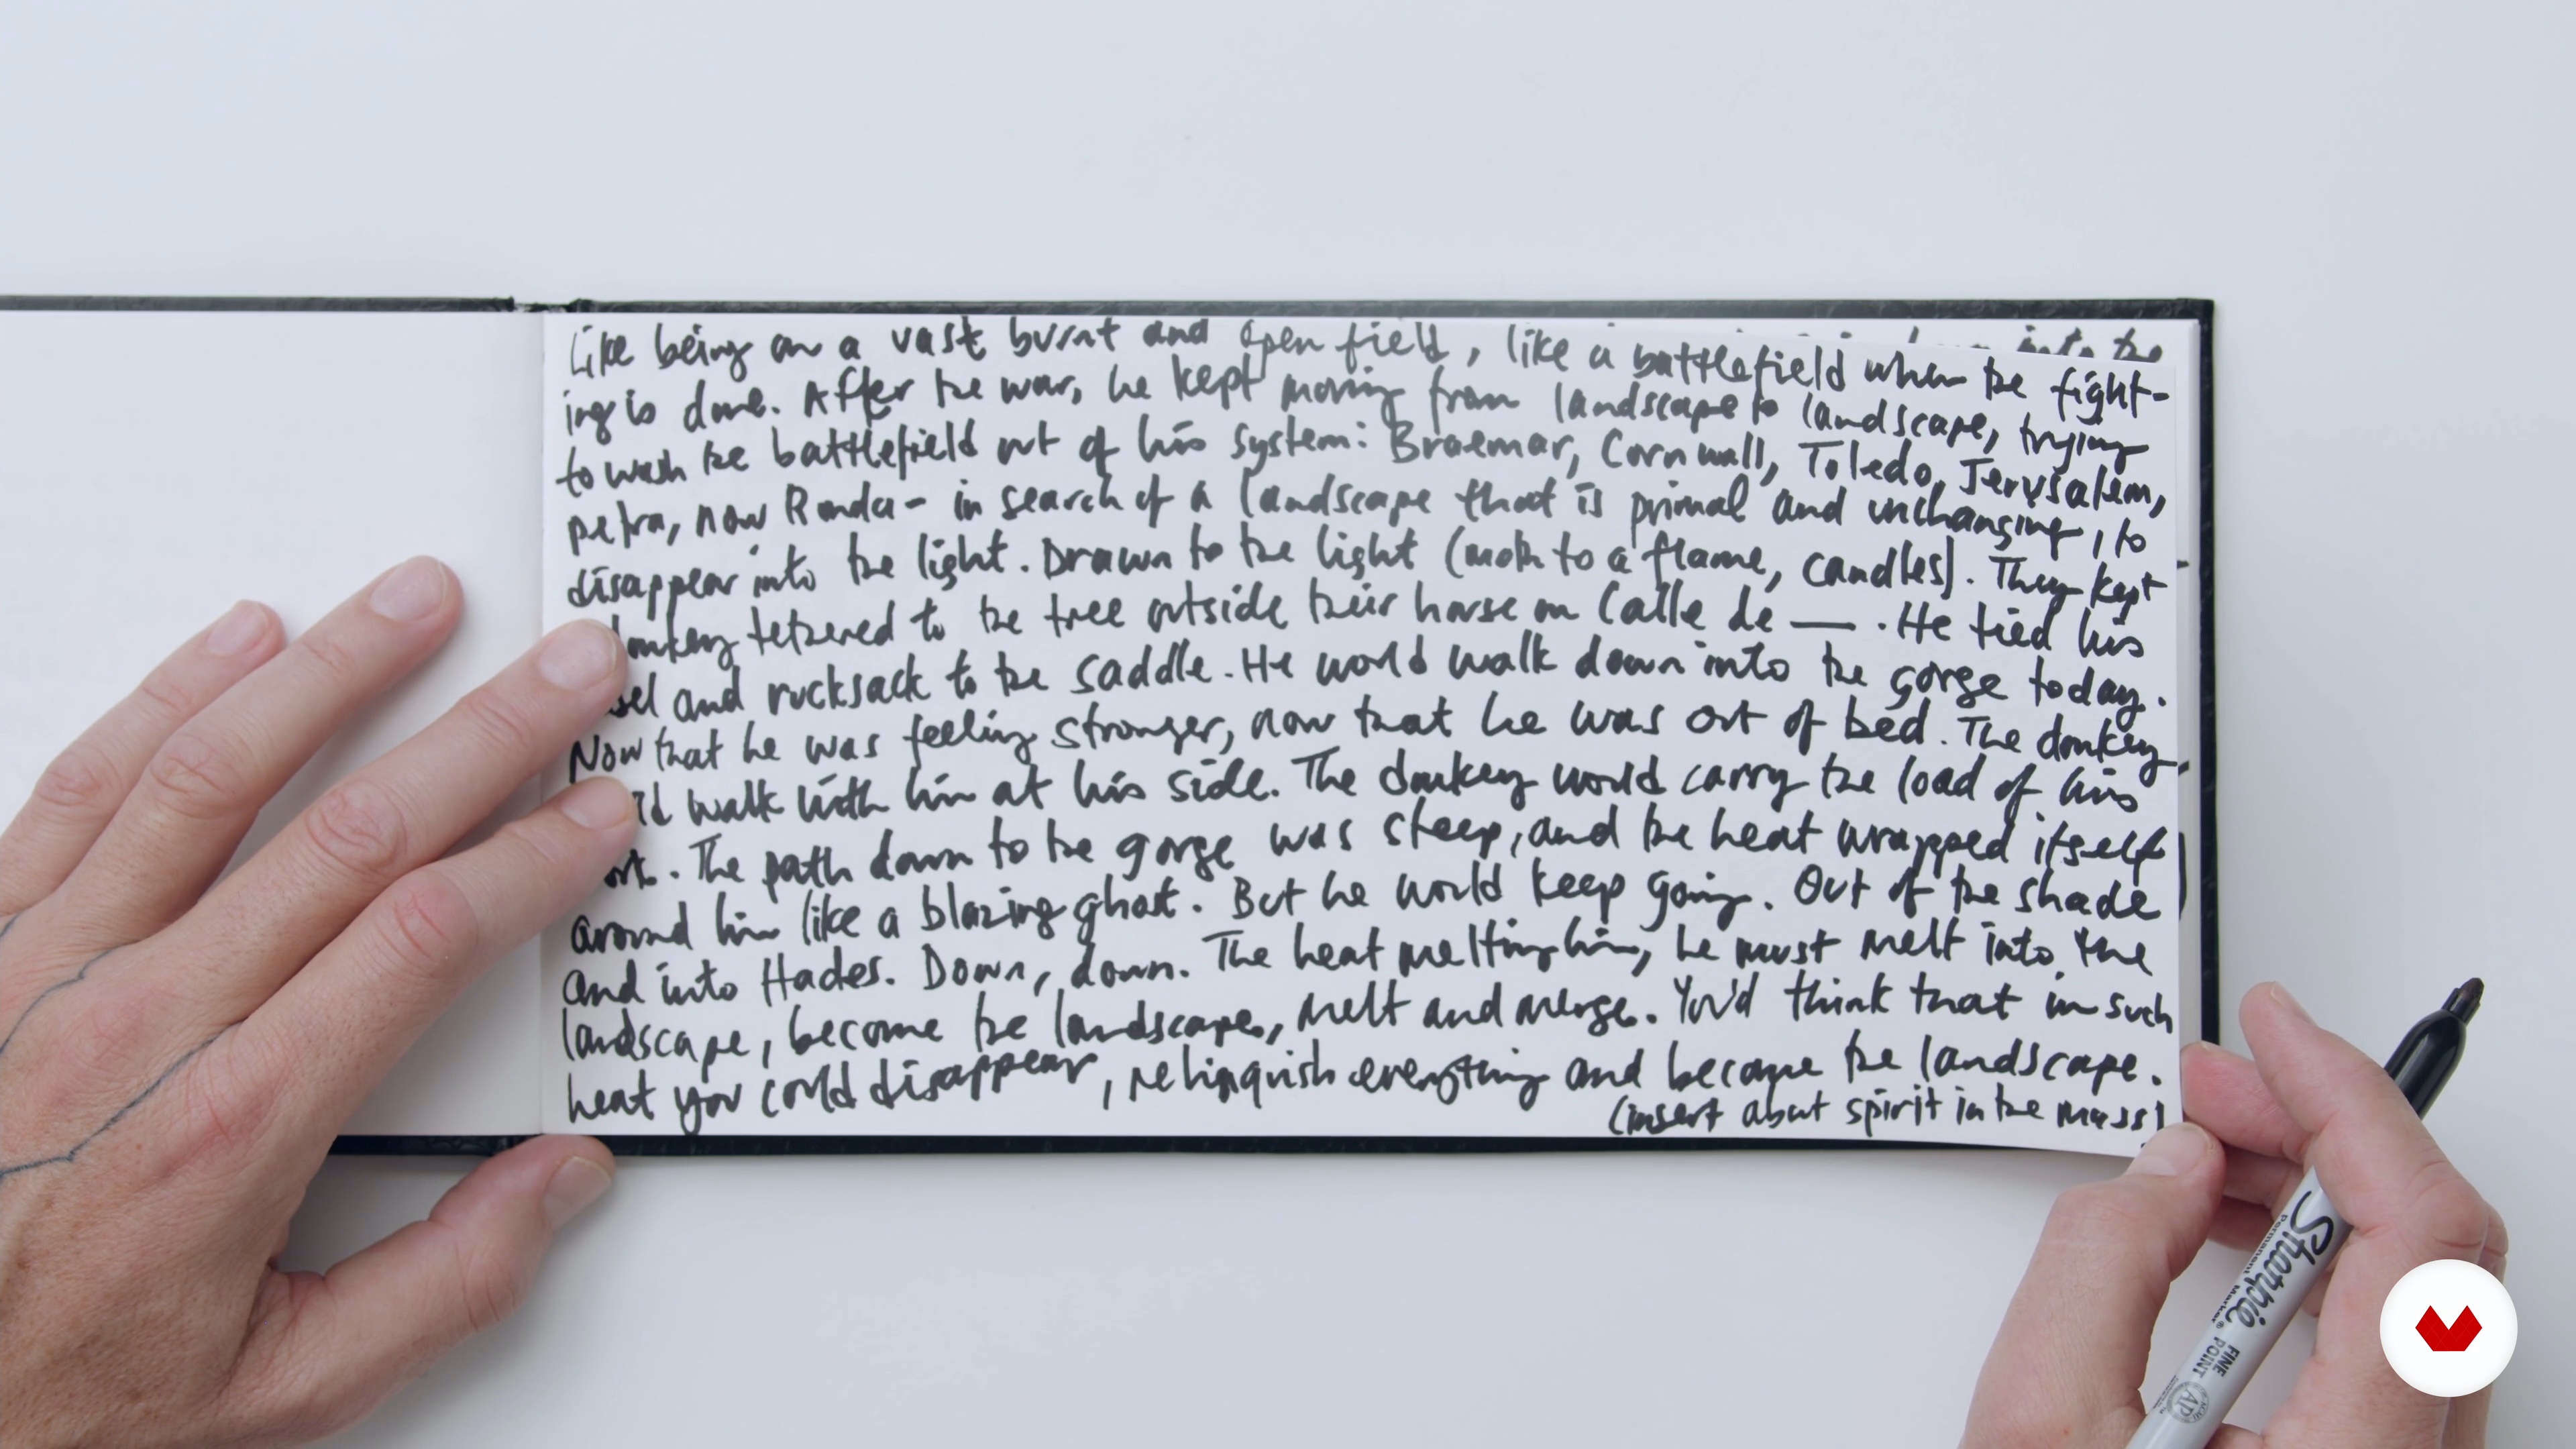 Like being on a vast burnt and open field, like a battlefield when the fight-
ing is done. After the war, he kept moving from landscape to landscape, trying
to wash the battlefield out of his system: Braemar, Cornwall, Toledo, Jerusalem,
petra, now Ronda - in search of a landscape that is primal and unchanging, to
disappear into the light. Drawn to the light (moth to a flame, candles). They kept
onkey tethered to the tree outside their house on Calle de —. He tied his
sel and rucksack to the saddle. He would walk down into the gorge today.
Now that he was feeling stronger, now that he was out of bed. The donkey
ld walk with him at his side. The donkey would carry the load of his
ork. The path down to the gorge was steep, and the heat wrapped itself
around him like a blazing ghost. But he would keep going. Out of the shade
and into Hades. Down, down. The heat melting him, he must melt into the
landscape, become the landscape, melt and merge. You'd think that in such
heat you could disappear, relinquish everything and become the landscape.
(insert about spirit in the mass)
into the
Sharpie
Permanent Marker
FINE POINT
AP